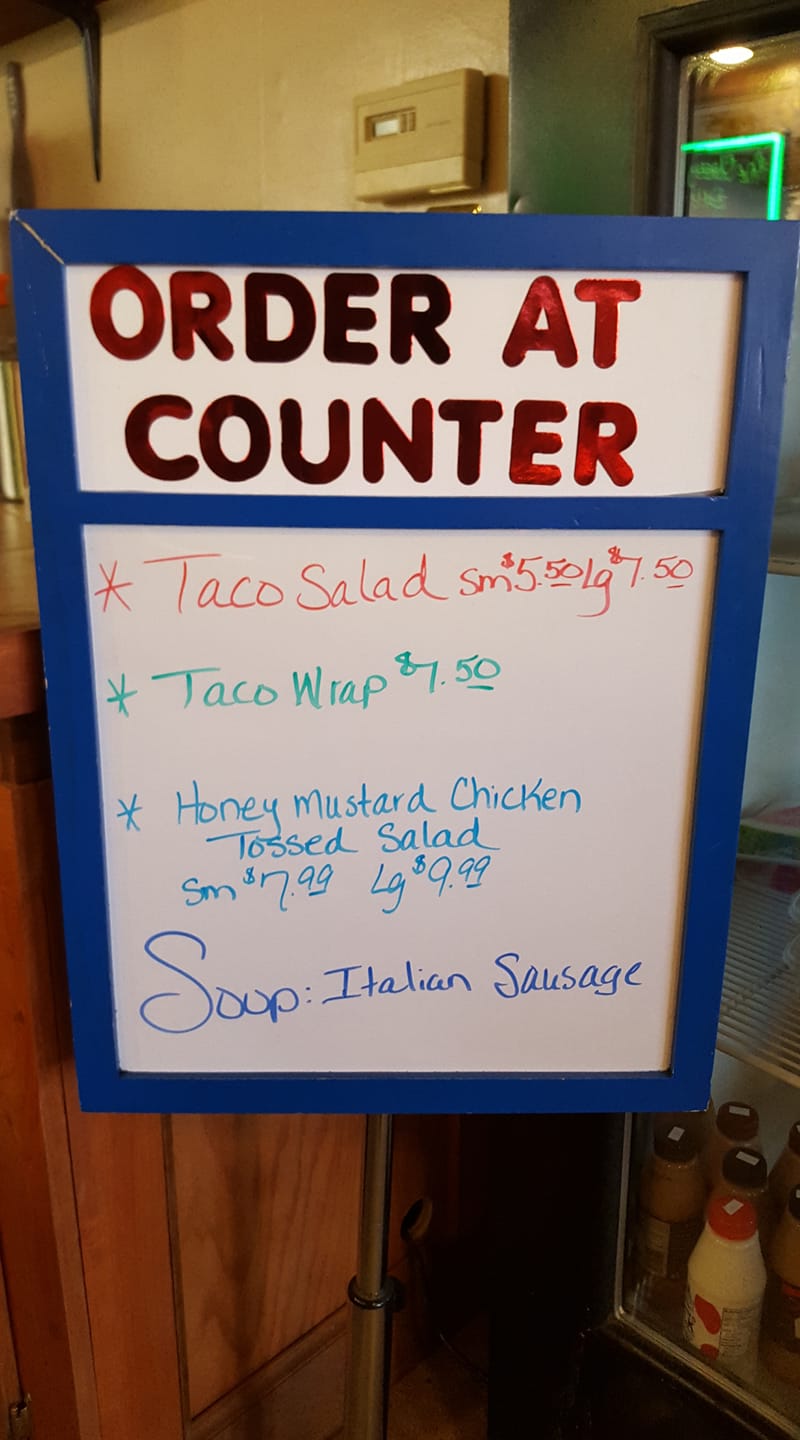 ORDER AT
COUNTER
* Taco Salad sm $5.50 Lg $7.50
* Taco Wrap $7.50
* Honey Mustard Chicken
Tossed Salad
Sm $7.99 Lg $9.99
Soup: Italian Sausage